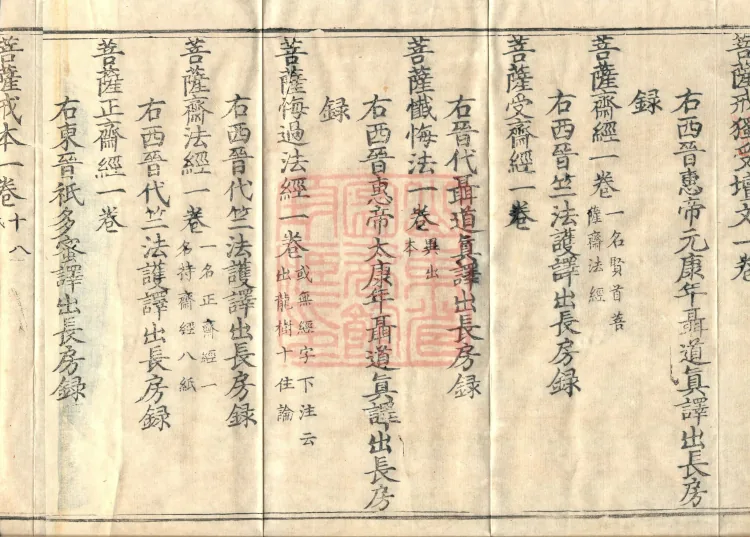 菩薩戒獨受壇文一卷
右西晉惠帝元康年聶道真譯出長房
録
菩薩齋經一卷一名賢首菩
薩齋法經
右西晉竺法護譯出長房録
菩薩受齋經一卷
右晉代聶道真譯出長房録
菩薩懺悔法一卷異出
本
右西晉惠帝太康年聶道真譯出長房
録
菩薩悔過法經一卷或無經字下注云
出龍樹十住論
右西晉代竺法護譯出長房録
菩薩齋法經一卷一名正齋經一
名持齋經八紙
右西晉代竺法護譯出長房録
菩薩正齋經一卷
右東晉祇多蜜譯出長房録
菩薩戒本一卷十八